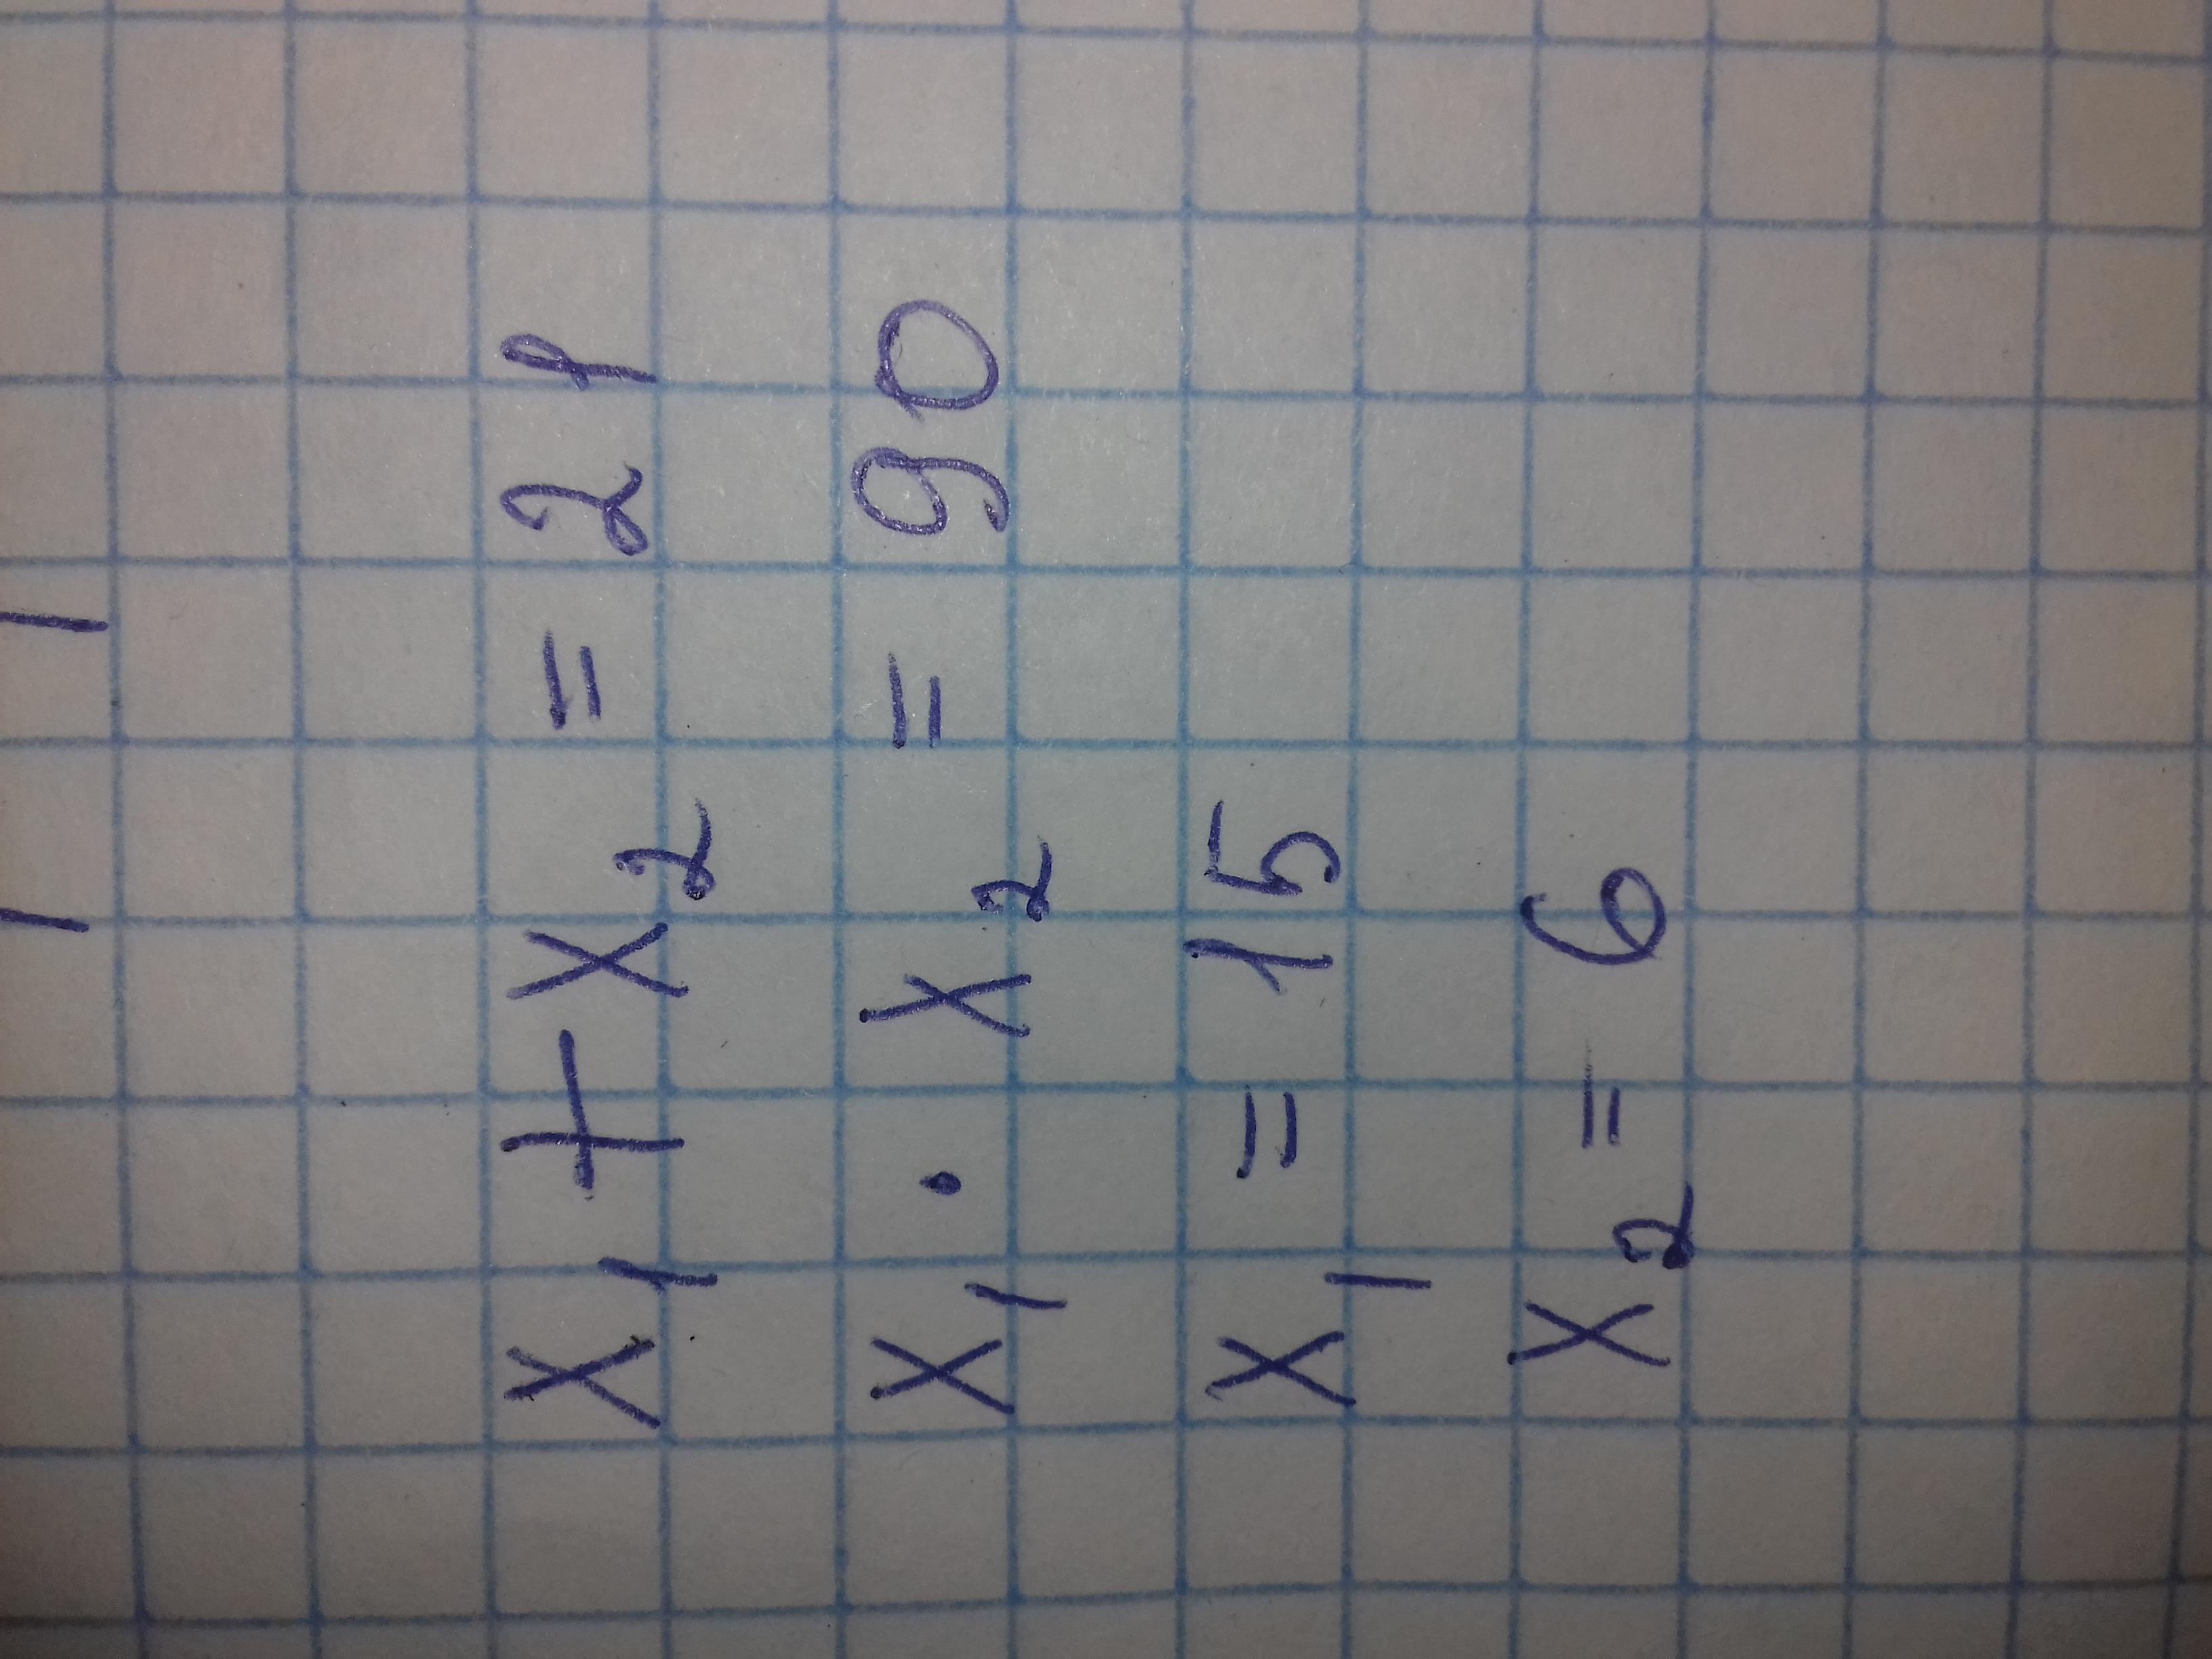 X₁ + X₂ = 21
X₁ · X₂ = 90
X₁ = 15
X₂ = 6